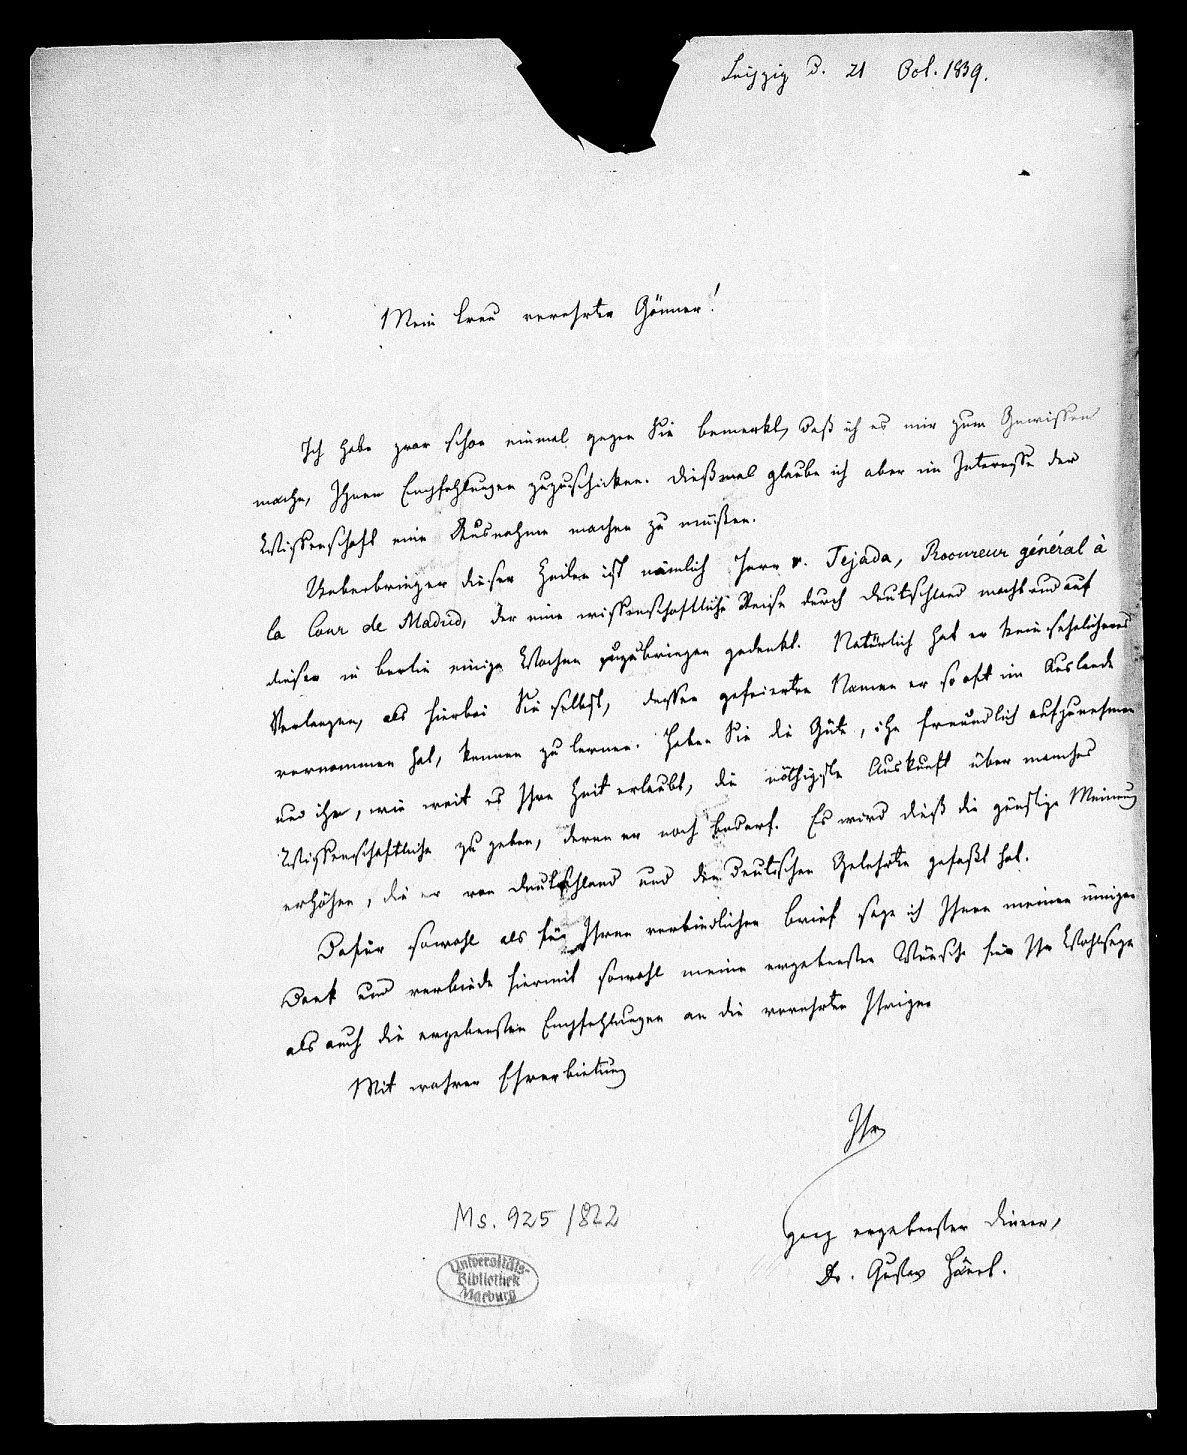 Leipzig d. 21 Oct. 1839.
Mein treu verehrter Gönner!
Ich habe zwar schon einmal gegen Sie bemerkt, daß ich es mir zum Gewissen
mache, Ihnen Empfehlungen zuzuschicken. Dießmal glaube ich aber im Interesse der
Wissenschaft eine Ausnahme machen zu müssen.
Ueberbringer dieser Zeilen ist nämlich Herr v. Tejada, Procureur général à
la Cour de Madrid, der eine wissenschaftliche Reise durch Deutschland macht und auf
dieser in Berlin einige Wochen zuzubringen gedenkt. Natürlich hat er kein sehnlicheres
Verlangen, als hierbei Sie selbst, dessen gefeierten Namen er so oft im Auslande
vernommen hat, kennen zu lernen. Haben Sie die Güte, ihn freundlich aufzunehmen
und ihm, wie weit es Ihre Zeit erlaubt, die nöthigste Auskunft über manches
Wissenschaftliche zu geben, deren er noch bedarf. Es wird dieß die günstige Meinung
erhöhen, die er von Deutschland und den Deutschen Gelehrten gefaßt hat.
Dafür sowohl als für Ihren verbindlichen Brief sage ich Ihnen meinen innigen
Dank und verbinde hiermit sowohl meine ergebensten Wünsche für Ihr Wohlseyn
als auch die ergebensten Empfehlungen an die verehrten Ihrigen
Mit wahrer Ehrerbietung
Ihr
ganz ergebenster Diener,
Dr. Gustav Hänel.
Ms. 925/822
Universitäts-
Bibliothek
Marburg